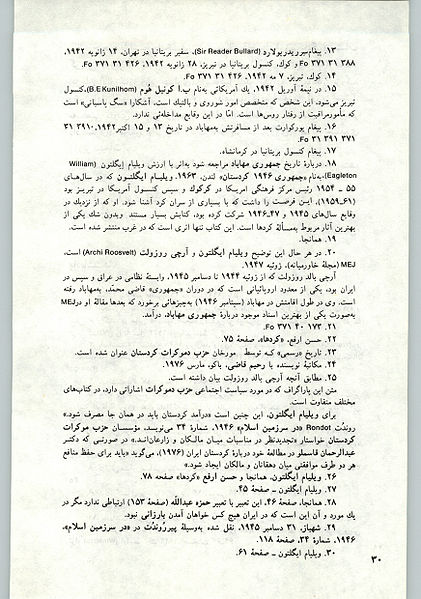 ۱۳. پیغام سیر ریدر بولارد (Sir Reader Bullard)، سفیر بریتانیا در تهران، ۱۴ ژانویه ۱۹۴۲،
Fo ۳۷۱ ۳۱ ۳۸۸ و کوک، کنسول بریتانیا در تبریز، ۲۸ ژانویه ۱۹۴۲، Fo ۳۷۱ ۳۱ ۴۲۶.
۱۴. کوک، تبریز، ۷ مه ۱۹۴۲، Fo ۳۷۱ ۳۱ ۴۲۶.
۱۵. در نیمهٔ آوریل ۱۹۴۲، یک آمریکائی بهنام ب.ا کونیل هُوم (B.E Kunilhom)، کنسول
تبریز می‌شود، این شخص که متخصص امور شوروی و بالتیک است، آشکارا «سگ پاسبانی» است
که مأمور مراقبت از رفتار روس‌ها است. امّا در این وقایع مداخله‌ئی ندارد.
۱۶. پیغام یورکوارت بعد از مسافرتش به‌مهاباد در تاریخ ۱۳ و ۱۵ اکتبر ۱۹۴۲، ۳۹۱۰ ۳۱
۳۷۱ ۳۹۱ ۳۱
۱۷. پیغام کنسول بریتانیا در کرمانشاه.
۱۸. دربارهٔ تاریخ جمهوری مهاباد مراجعه شود به‌اثر با ارزش ویلیام ایگلتون (William
Eagleton)، به‌نام «جمهوری ۱۹۴۶ کردستان» لندن، ۱۹۶۳. ویلیام ایگلتون که در سال‌های
۵۵ ـ ۱۹۵۴ رئیس مرکز فرهنگی امریکا در کرکوک و سپس کنسول آمریکا در تبریز بود
(۶۱ـ۱۹۵۹)، این فرصت را داشت که با بسیاری از سران کرد آشنا شود. او که از نزدیک در
وقایع سال‌های ۱۹۴۵ و ۴۷ـ۱۹۴۶ شرکت کرده بود، کتابش بسیار مستند وبدون شک یکی از
بهترین آثار مربوط به‌مسألهٔ کردها است. این کتاب تنها اثری است که در غرب منتشر شده است.
۱۹. همانجا.
۲۰. در هر حال این توضیح ویلیام ایگلتون و آرچی روزولت (Archi Roosvelt) است،
MEJ (مجلّهٔ خاورمیانه)، ژوئیه ۱۹۴۷.
آرچی بالد روزولت که از ژوئیه ۱۹۴۴ تا دسامبر ۱۹۴۵، وابستهٔ نظامی در عراق و سپس در
ایران بود، یکی از معدود اروپائیانی است که در دوران «جمهوری» قاضی محمد، به‌مهاباد رفته
است. وی در طول اقامتش در مهاباد (سپتامبر ۱۹۴۶) به‌چیزهائی برخورد که بعدها مقالهٔ او درMEJ
به‌صورت یکی از بهترین اسناد موجود دربارهٔ جمهوری مهاباد، درآمد.
۲۱. Fo ۳۷۱ ۴۰ ۱۷۳.
۲۲. حسن ارفع، «کردها»، صفحهٔ ۷۵.
۲۳. تاریخ «رسمی» که توسط مورخان حزب دموکرات کردستان عنوان شده است.
۲۴. مکاتبهٔ نویسنده با رحیم قاضی، باکو، مارس ۱۹۷۶.
۲۵. مطابق آنچه آرچی بالد روزولت بیان داشته است.
متن این پاراگراف که در مورد سیاست اجتماعی حزب دموکرات اشاراتی دارد، در کتاب‌های
مختلف متفاوت است.
برای ویلیام ایگلتون، این چنین است «درآمد کردستان باید در همان جا مصرف شود.»
روندُت Rondot «در سرزمین اسلام» ۱۹۴۶، شمارهٔ ۳۴ می‌نویسد، مؤسسان حزب موکرات
کردستان خواستار «تجدیدنظر در مناسبات میان مالکان و زارعان‌اند.» در صورتی که دکتر
عبدالرحمان قاسملو در مطالعهٔ خود دربارهٔ کردستان ایران (۱۹۷۶)، می‌گوید «باید برای حفظ منافع
هر دو طرف موافقتی میان دهقانان و مالکان ایجاد شود.»
۲۶. ویلیام ایگلتون ـ همانجا و حسن ارفع «کردها» صفحه ۷۸.
۲۷. ویلیام ایگلتون ـ صفحهٔ ۴۵.
۲۸. همانجا، صفحهٔ ۴۶، این تعبیر با تعبیر حمزه عبدالله (صفحهٔ ۱۵۳) ارتباطی ندارد مگر در
یک مورد و آن این است که در ایران هیچ کس خواهان آمدن بارزانی نبود.
۲۹. شهباز، ۳۱ دسامبر ۱۹۴۵، نقل شده به‌وسیلهٔ پیررُوندُت در «در سرزمین اسلام»،
۱۹۴۶، شمارهٔ ۳۴، صفحهٔ ۱۱۸.
۳۰. ویلیام ایگلتون ـ صفحهٔ ۶۱.
۳۰